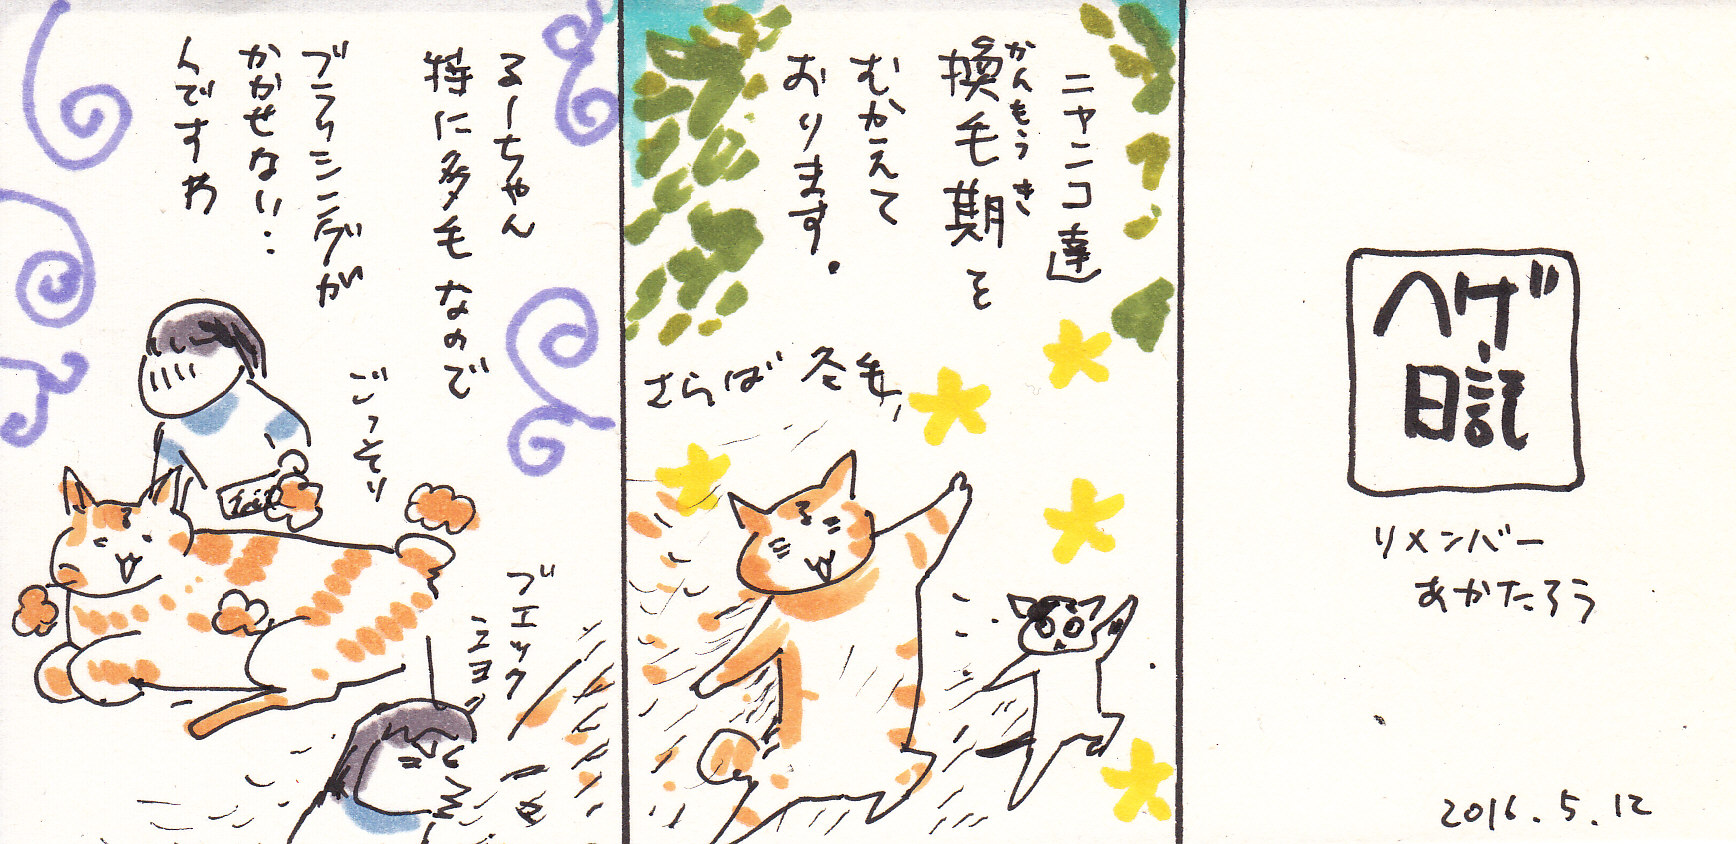 ヘゲ
日記
リメンバー
あかたろう
2016.5.12
ニャンコ達
換毛期を
かんもうき
むかえて
おります。
さらば 冬毛,
るーちゃん
特に多毛なので
ブラッシングが
かかせない‥
んですわ
ごっそり
ブエック
ショッ